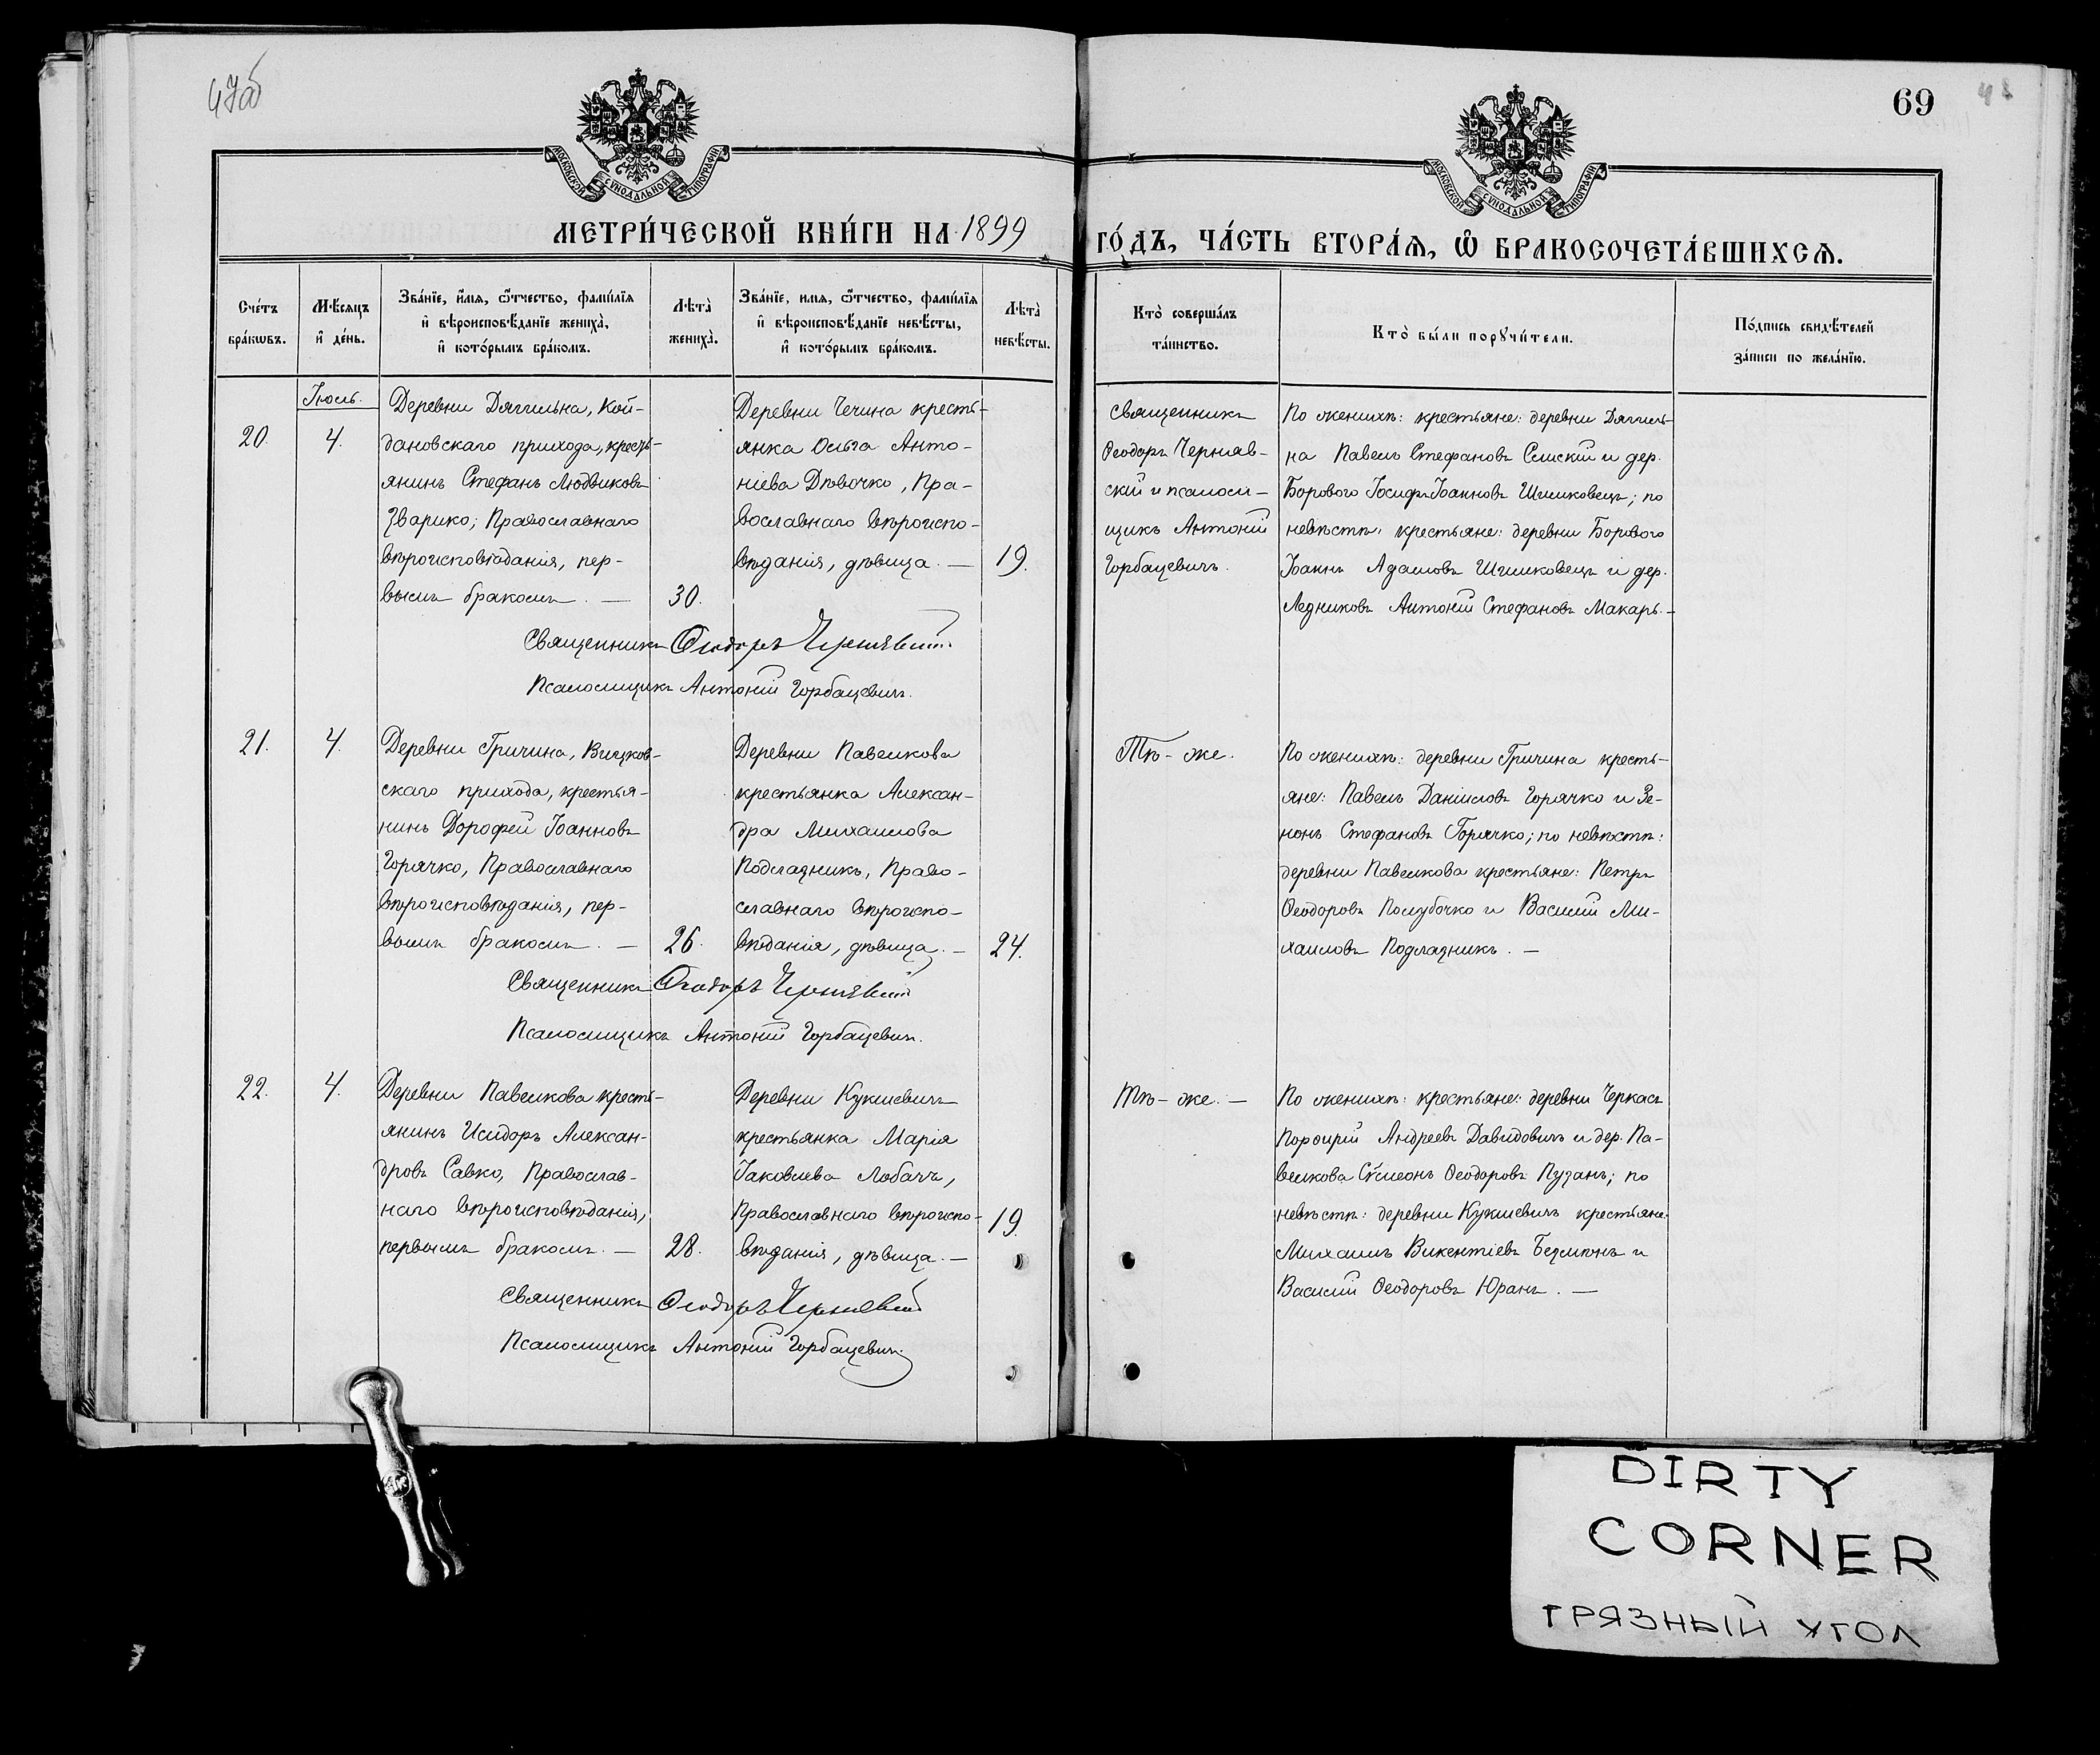 47об
69
МОСКОВСКОЙ СѴНОДАЛЬНОЙ ТИПОГРАФІИ
МОСКОВСКОЙ СѴНОДАЛЬНОЙ ТИПОГРАФІИ
МЕТРИ́ЧЕСКОЙ КНИ́ГИ НА 1899
ГО́ДЪ, ЧА́СТЬ ВТОРА́Ѧ, Ѡ БРАКОСОЧЕТА́ВШИХСѦ.
Счетъ бра́кѡвъ.
Мѣ́сѧцъ и҆ де́нь.
Зва́нїе, и҆́мѧ, ѻ҆́тчество, фамѝлїѧ
и҆ вѣроисповѣ́данїе жениха̀,
и҆ кото́рымъ бра́комъ.
Лѣта̀ жениха̀.
Зва́нїе, имѧ, ѻ҆́тчество, фами́лїѧ
и҆ вѣроисповѣ́данїе невѣ́сты,
и҆ кото́рымъ бра́комъ.
Лѣта̀ невѣ́сты.
Кто̀ соверша́лъ та́инство.
Кто̀ бы́ли порꙋчи́тели.
По́дпись свидѣ́телей
за́писи по жела́нїю.
Іюль.
20.
4.
Деревни Дягильна, Кой-
дановскаго прихода, кресть-
янинъ Стефанъ Людвиковъ
Зварико; Православнаго
вѣроисповѣданія, пер-
вымъ бракомъ. —
30.
Деревни Чечина кресть-
янка Ольга Анто-
ніева Дѣвочко, Пра-
вославнаго вѣроиспо-
вѣданія, дѣвица. —
19.
Священникъ
Ѳеодоръ Черняв-
скій и псалом-
щикъ Антоній
Горбацевичъ.
По женихѣ: крестьяне: деревни Дягиль-
на Павелъ Стефановъ и дер.
Борового Іосифъ Іоанновъ Шишковецъ; по
невѣстѣ: крестьяне: деревни Борового
Іоаннъ Адамовъ Шишковецъ и дер.
Ледниковъ Антоній Стефановъ Макаръ. -
Священникъ Ѳеодоръ Чернявскій
Псаломщикъ Антоній Горбацевичъ.
21.
4.
Деревни Гричина, Вицков-
скаго прихода, крестья-
нинъ Дорофей Іоанновъ
Горячко, Православнаго
вѣроисповѣданія, пер-
вымъ бракомъ. —
26.
Деревни Павелкова
крестьянка Алексан-
дра Михаилова
Подгазникъ, Право-
славнаго вѣроиспо-
вѣданія, дѣвица. —
24.
Тѣ-же.
По женихѣ: деревни Гричина кресть-
яне: Павелъ Даніиловъ Горячко и Зе-
нонъ Стефановъ Горячко; по невѣстѣ:
деревни Павелкова крестьяне: Петръ
Ѳеодоровъ Полубочко и Василій Ми-
хаиловъ Подгазникъ. —
Священникъ Ѳеодоръ Чернявскій
Псаломщикъ Антоній Горбацевичъ.
22.
4.
Деревни Павелкова кресть-
янинъ Исидоръ Алексан-
дровъ Савко, Православ-
наго вѣроисповѣданія,
первымъ бракомъ. —
28.
Деревни Кукшевичъ
крестьянка Марія
Іаковлева Лобачъ,
Православнаго вѣроиспо-
вѣданія, дѣвица. —
19.
Тѣ-же. —
По женихѣ: крестьяне: деревни Черкасъ
Порфирій Андреевъ Давидовичъ и дер. Па-
велкова Сѵмеонъ Ѳеодоровъ Пузанъ; по
невѣстѣ: деревни Кукшевичъ крестьяне:
Михаилъ Викентіевъ Безмѣнъ и
Василій Ѳеодоровъ Юранъ. —
Священникъ Ѳеодоръ Чернявскій
Псаломщикъ Антоній Горбацевичъ.
DIRTY
CORNER
ГРЯЗНЫЙ УГОЛ